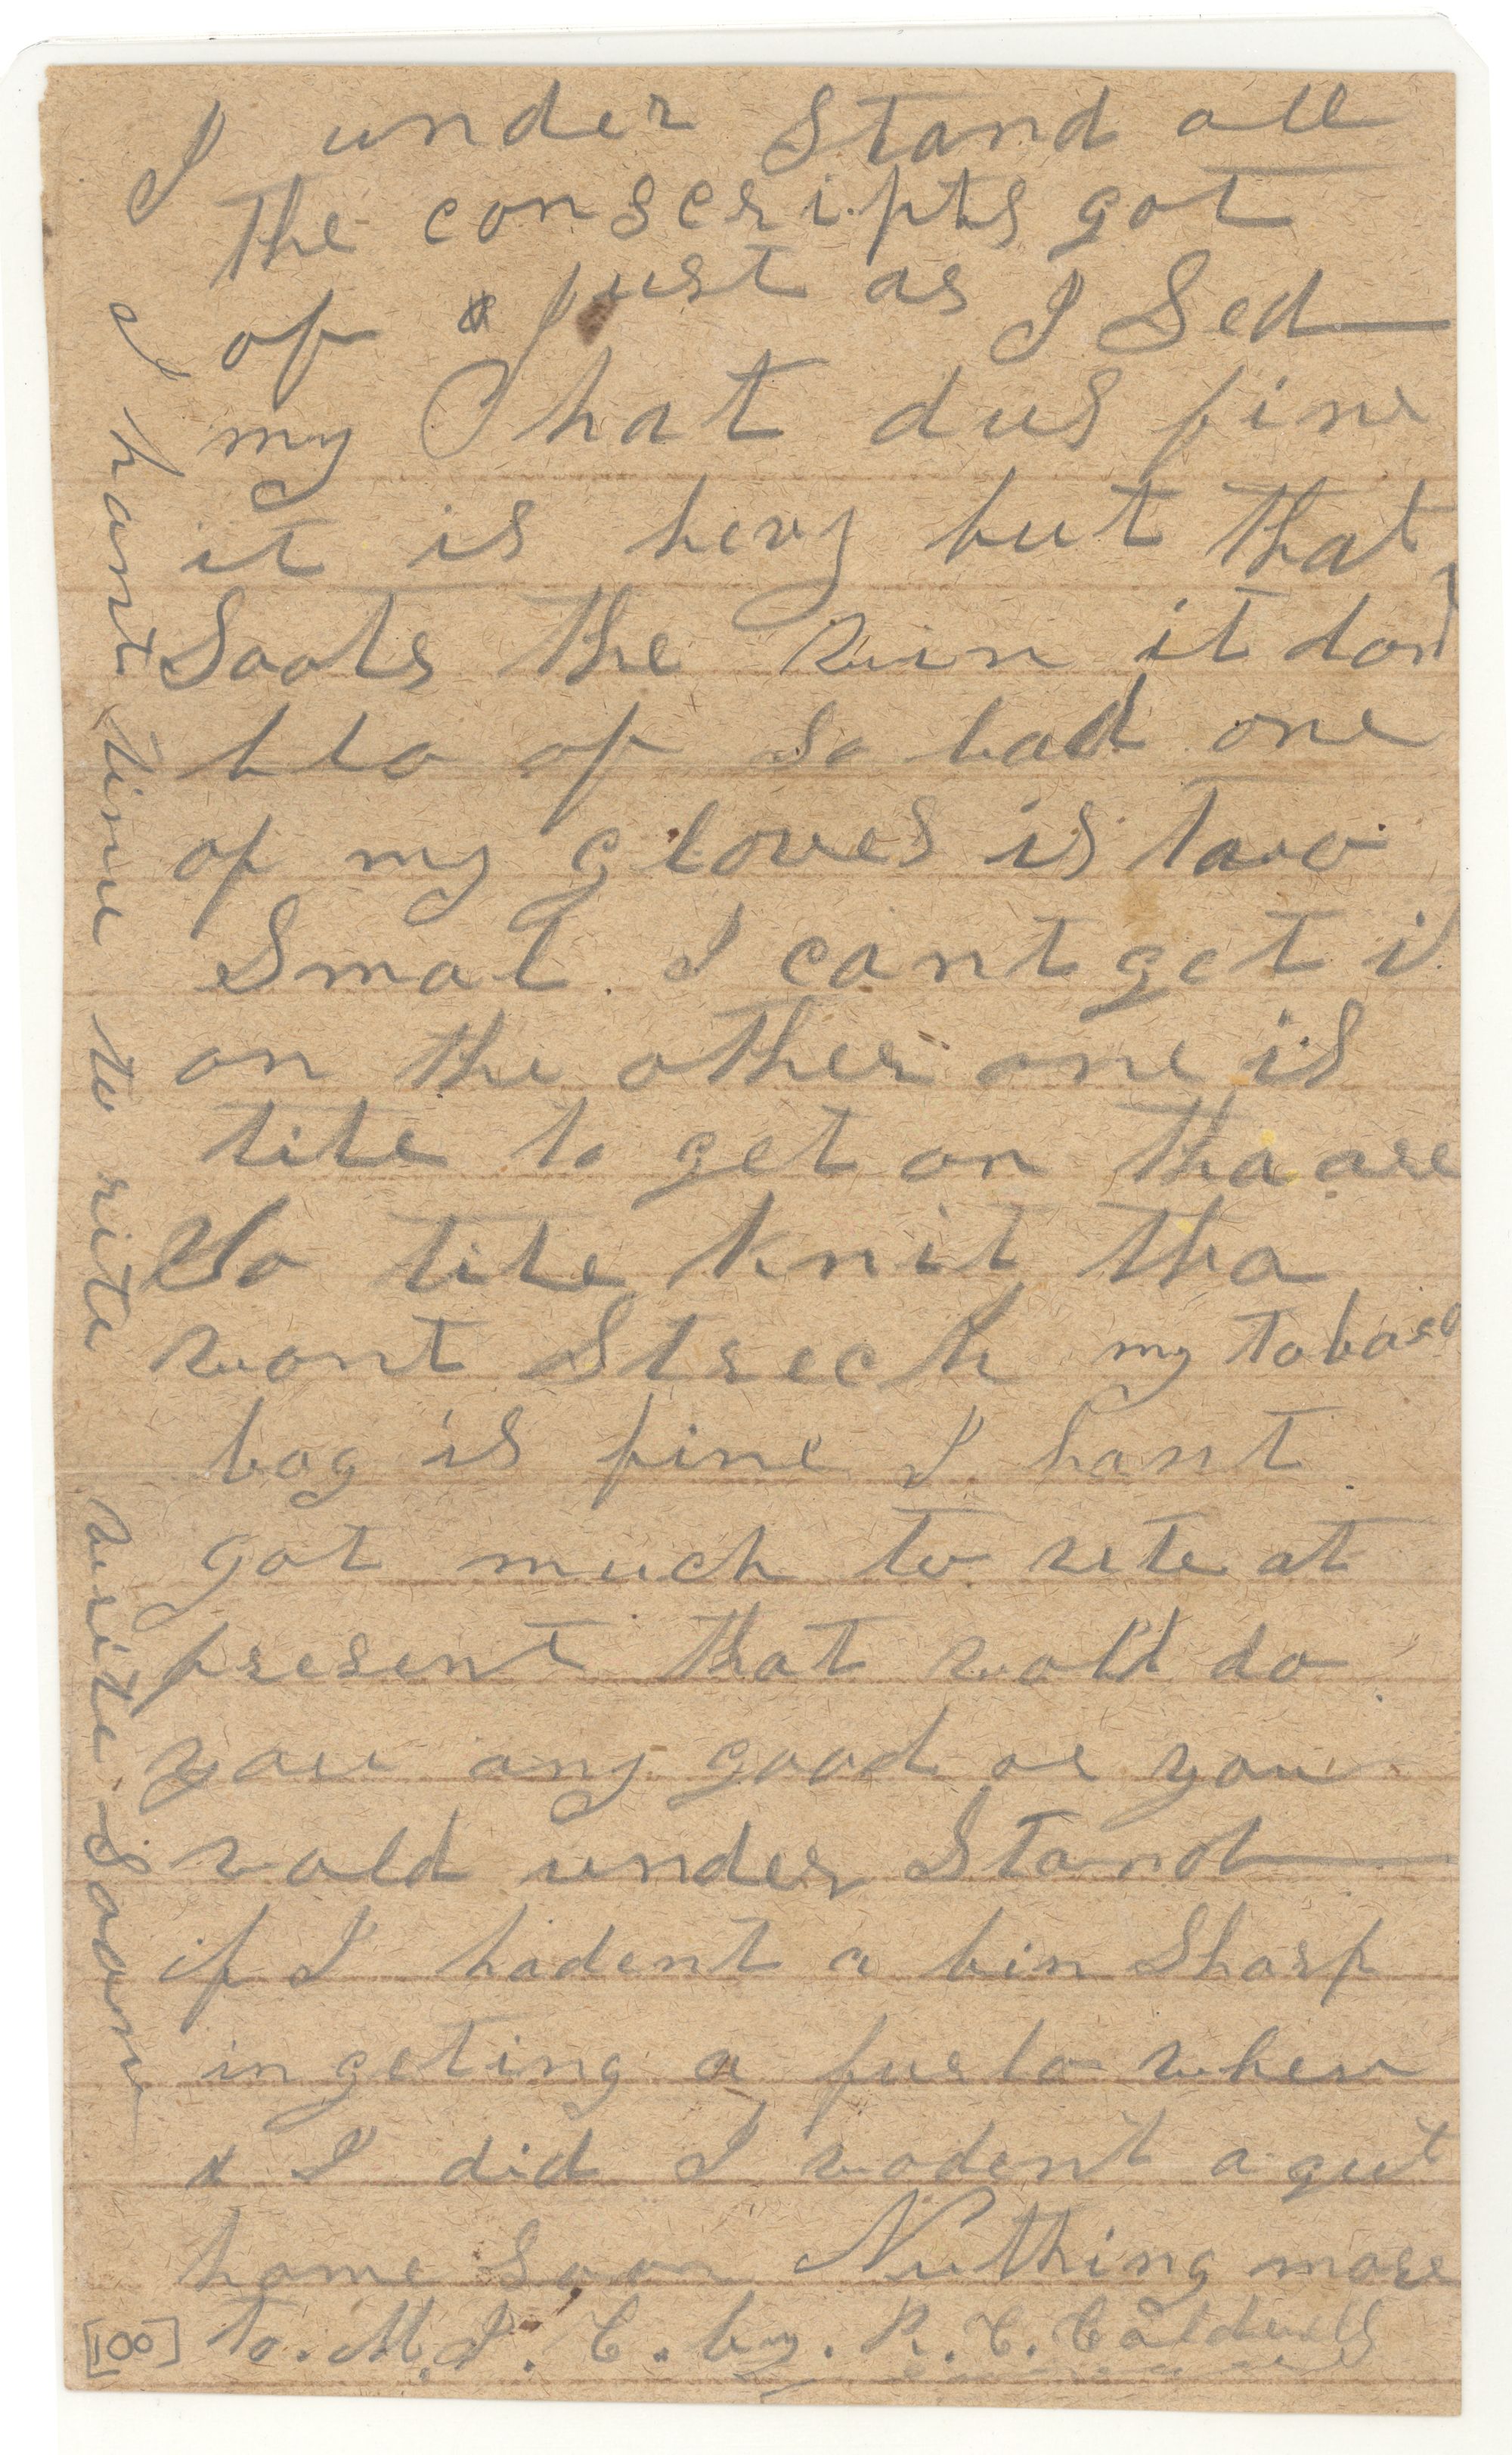 I under Stand all
the conscripts got
of Just as I Sed
my hat dus fine
it is hevy but that
Soots the win it dont
blo of so bad one
of my gloves is two
Smal I cant get it
on the other one is
tite to get on tha are
So tite knit tha
wont Strech my tobaco
bag is fine I hant
got much to rite at
present that wold do
you any good or you
wold under Stand
if I hadent a bin Sharp
in geting a furlo when
I did I wodent a gut
home soon Nuthing more
to. M. I. C. by. R. C. Caldwell
I hant time to rite
write soon
[18]